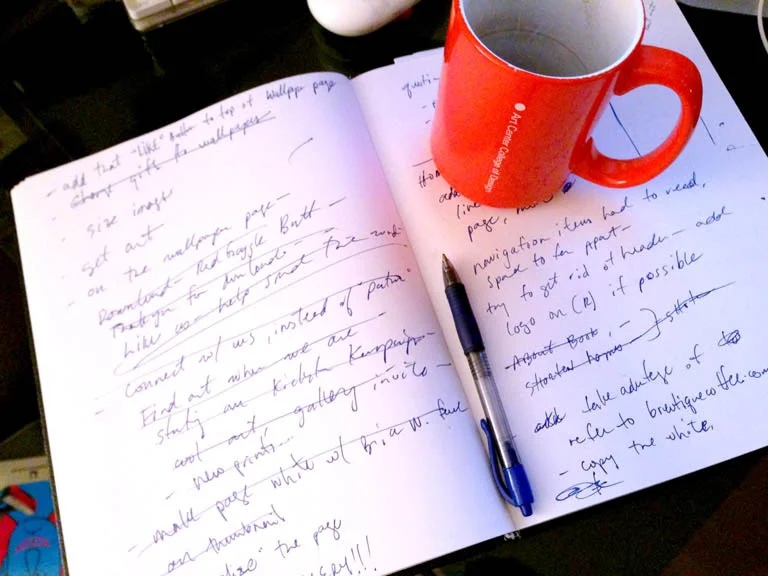 - add that "Like" button to top of Wallpaper page
- change gifts for wallpapers
- size images
- get art
- on the wallpaper page -
Download - Red Bicycle Book -
Thankyou for downloads -
Like us - help spread the word -
- Connect w/ us, instead of
Find out when we are
starting our Kickstarter Kampaign
cool art, gallery invites -
- new prints...
- make page white w/ b i a W.
on thumbnail
the page
!!!
quoti
Hom
add
line
page,
navigation items hard to read,
space to far apart -
try to get rid of header - add
logo on (R) if possible
- About Book, -
shorten
add take advantage of
refer to brewtiquecoffee.com
- copy the white,
Art Center College of Design